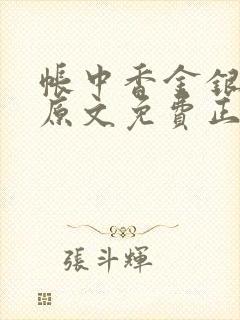 帳中香金銀
原文免費正
張斗輝